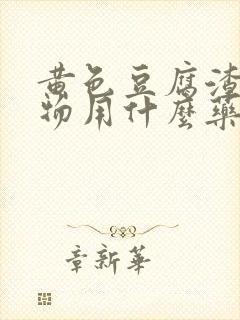 黄色豆腐渣
物用什麼藥
章新華